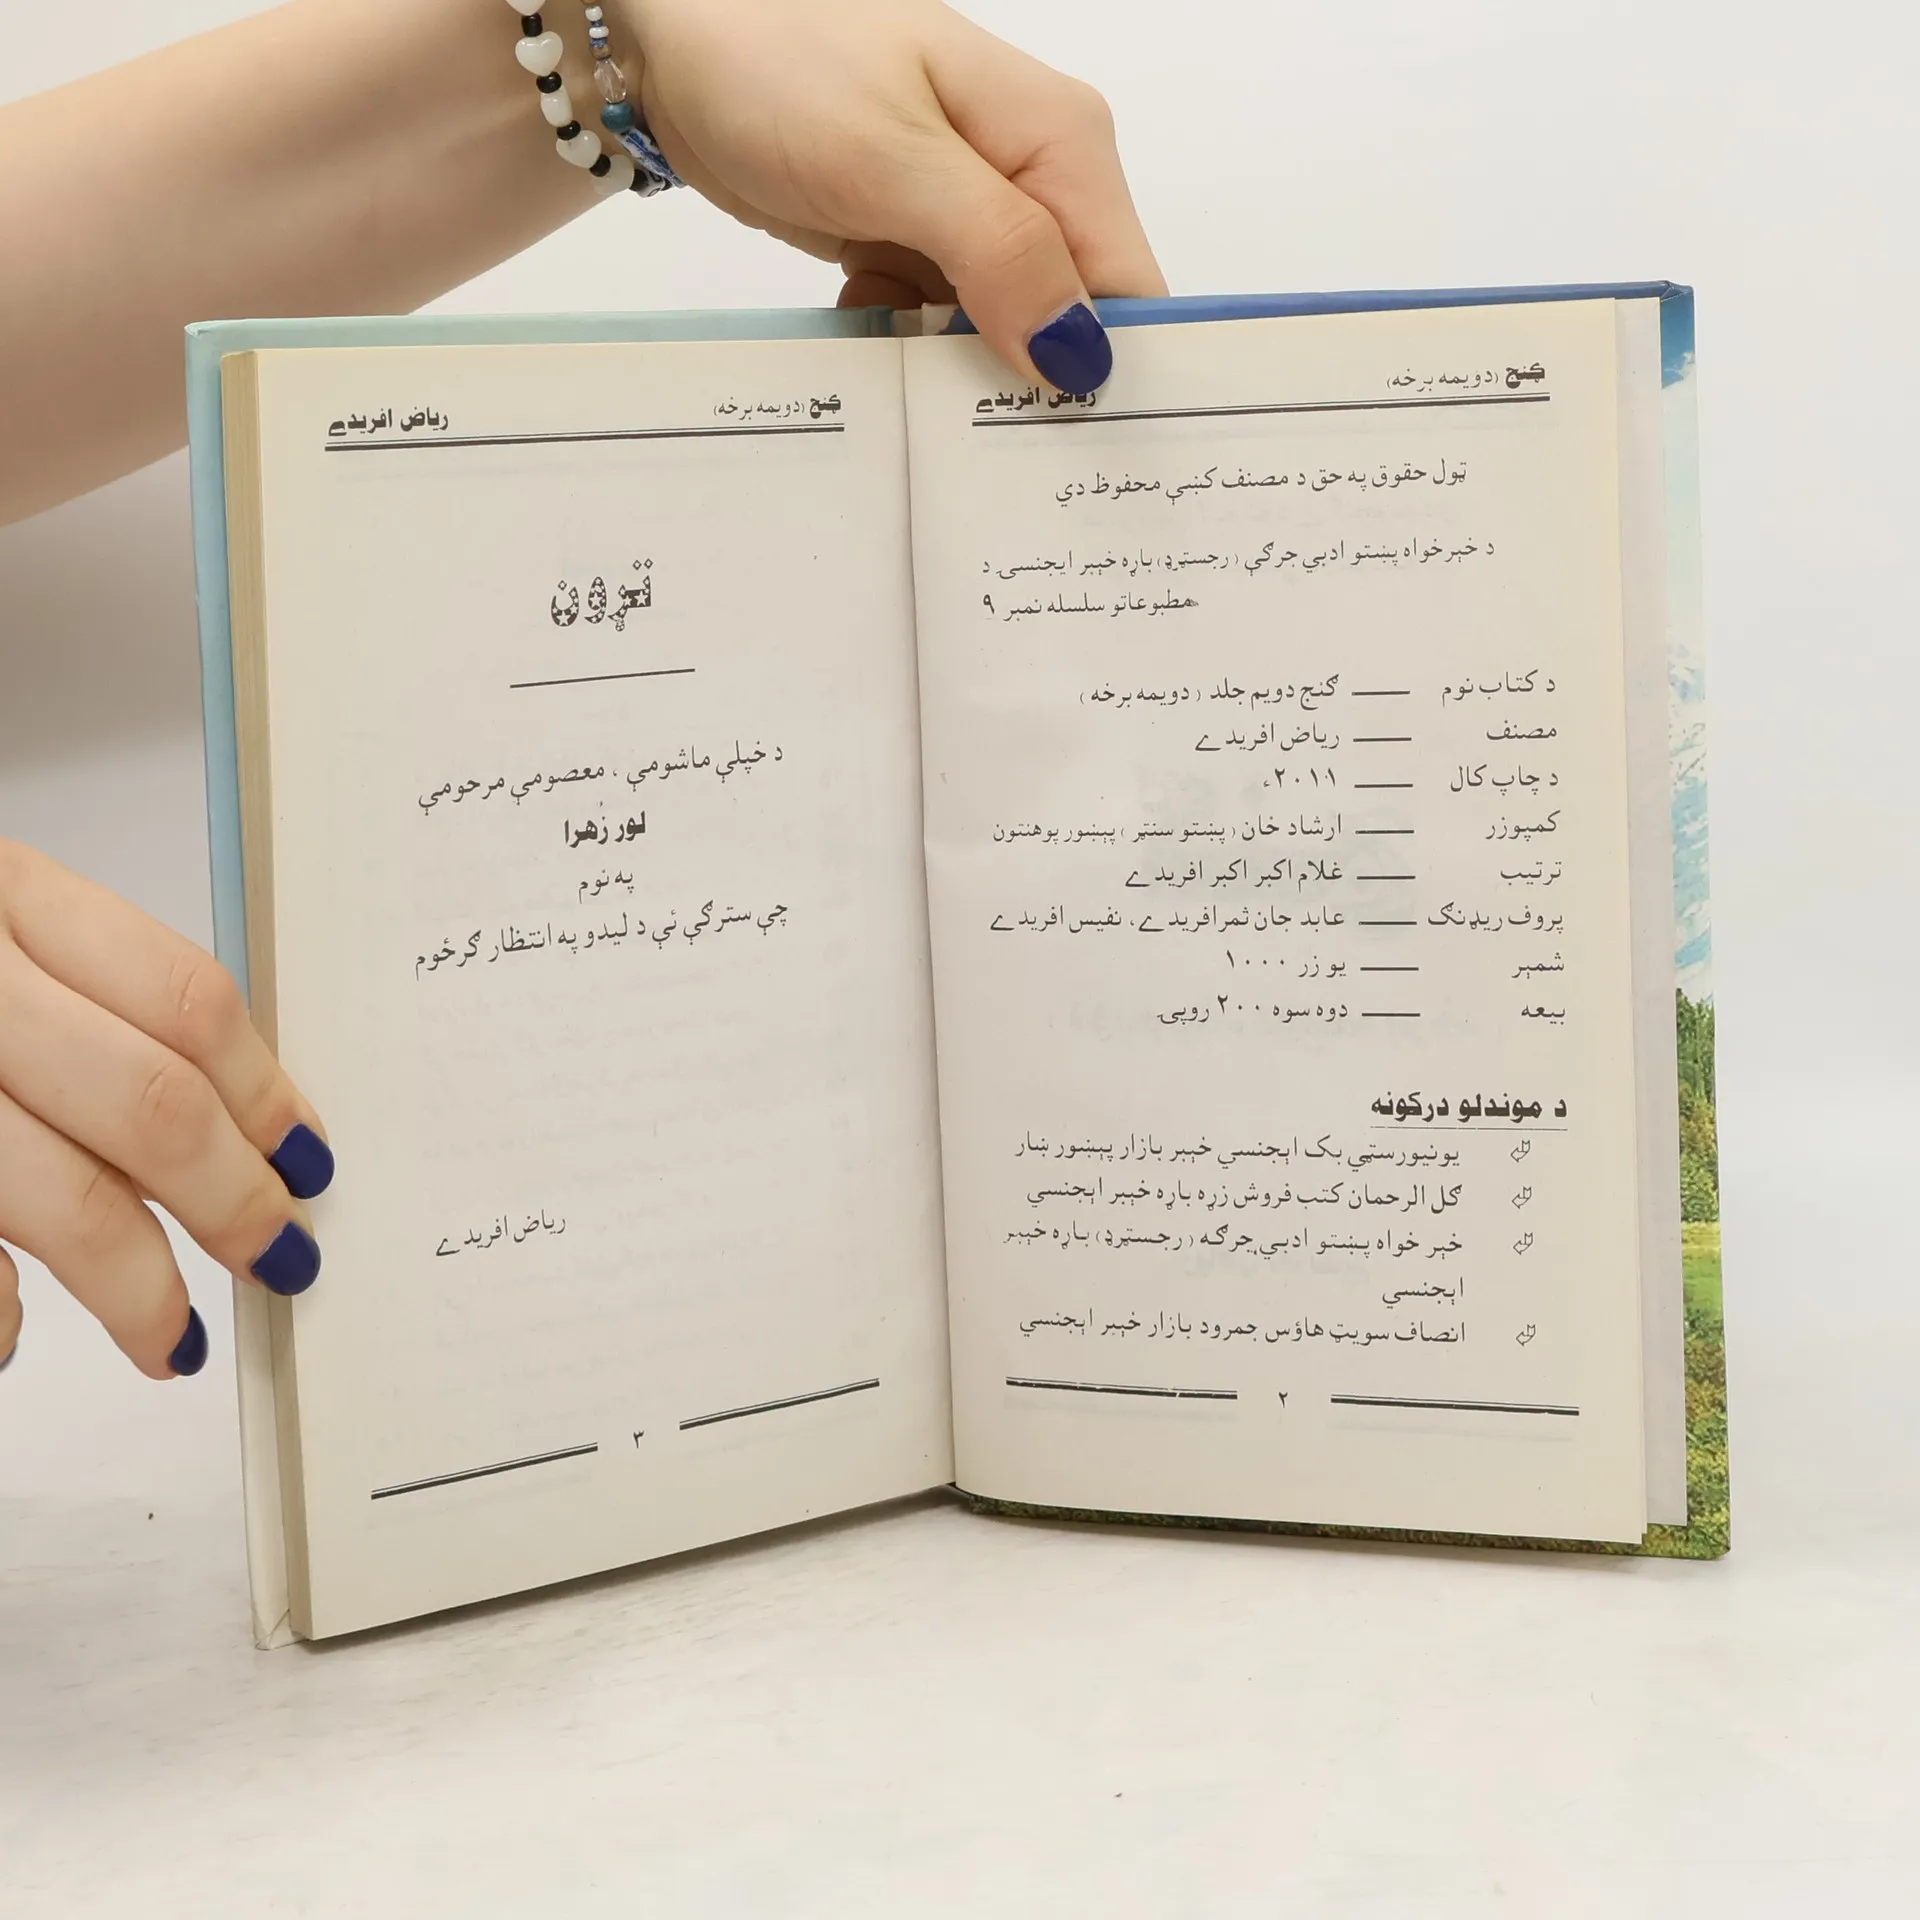 ګنج (دویمه برخه) ریاض افریدے
ټول حقوق په حق د مصنف کښې محفوظ دي
د خېبرخواه پښتو ادبي جرګې (رجسټرډ) باړه خېبر ایجنسۍ د
مطبوعاتو سلسله نمبر ۹
د کتاب نوم ـــــ ګنج دویم جلد (دویمه برخه)
مصنف ـــــ ریاض افریدے
د چاپ کال ـــــ ۲۰۱۱ء
کمپوزر ـــــ ارشاد خان (پښتو سنټر) پېښور پوهنتون
ترتیب ـــــ غلام اکبر اکبر افریدے
پروف ریډنګ ـــــ عابد جان ثمر افریدے، نفیس افریدے
شمېر ـــــ یو زر ۱۰۰۰
بیعه ـــــ دوه سوه ۲۰۰ روپۍ
د موندلو درکونه
یونیورسټي بک اېجنسي خېبر بازار پېښور ښار
ګل الرحمان کتب فروش زړه باړه خېبر اېجنسي
خېبر خواه پښتو ادبي جرګه (رجسټرډ) باړه خېبر
اېجنسي
انصاف سویټ هاؤس جمرود بازار خېبر اېجنسي
۲
ګنج (دویمه برخه) ریاض افریدے
تړون
د خپلې ماشومې، معصومې مرحومې
لور زُهرا
په نوم
چې سترګې ئې د لیدو په انتظار ګرځوم
ریاض افریدے
۳